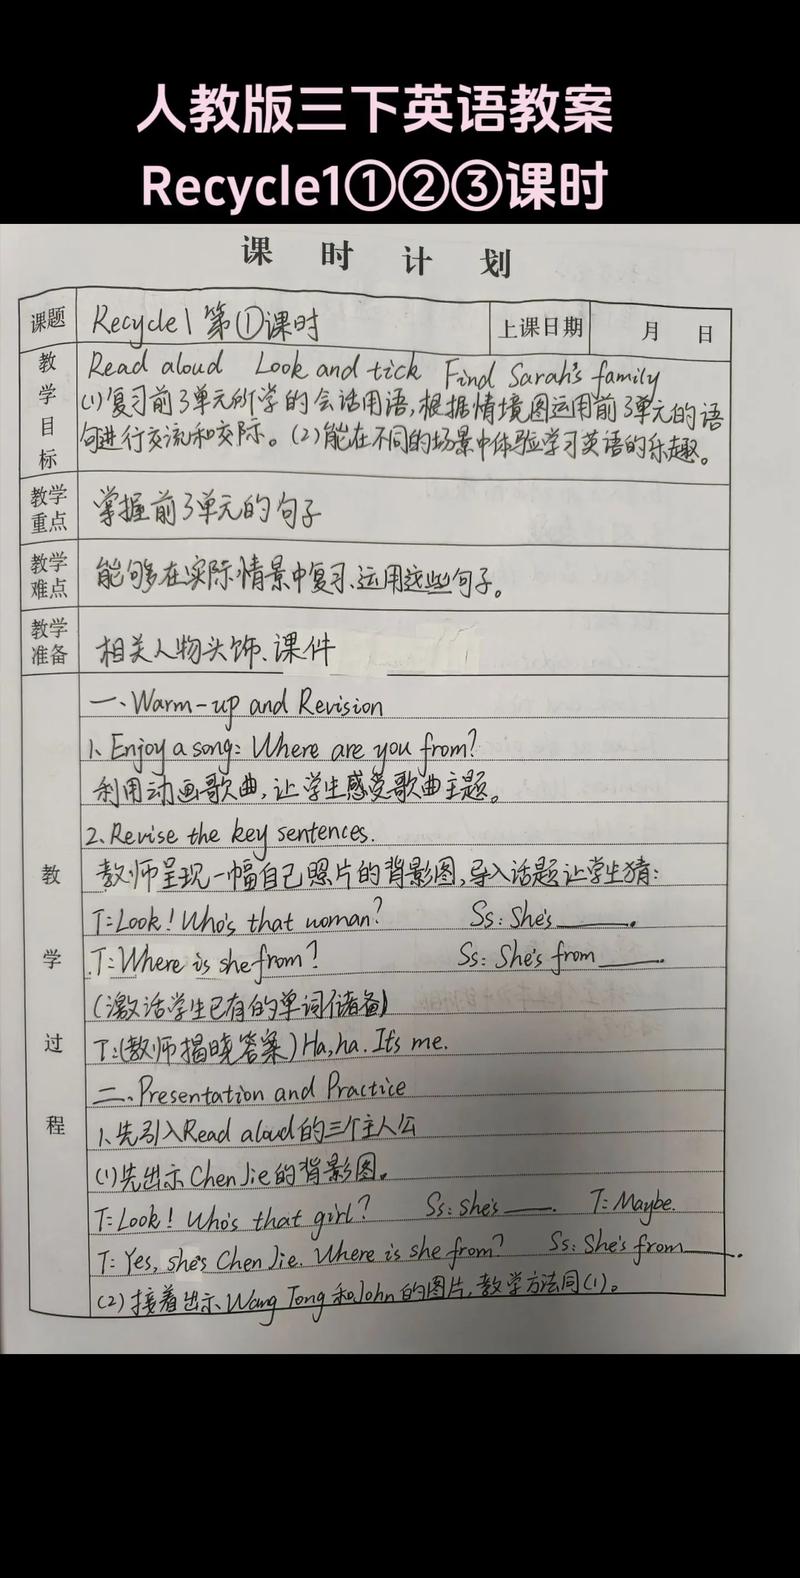 人教版三下英语教案
Recycle1①②③课时
课 时 计 划
课题 Recycle 1 第①课时 上课日期 月 日
教学目标
Read aloud Look and tick Find Sarah's family
(1)复习前3单元所学的会话用语,根据情境图运用前3单元的语
句进行交流和交际。(2)能在不同的场景中体验学习英语的乐趣。
教学重点 掌握前3单元的句子
教学难点 能够在实际情景中复习、运用这些句子。
教学准备 相关人物头饰、课件
教学过程
一、Warm-up and Revision
1、Enjoy a song: Where are you from?
利用动画歌曲,让学生感受歌曲主题。
2.Revise the key sentences.
教师呈现一幅自己照片的背影图,导入话题让学生猜:
T:Look! Who's that woman? Ss: She's ______.
T:Where is she from? Ss: She's from ______.
(激活学生已有的单词储备)
T:(教师揭晓答案)Ha,ha. It's me.
二、Presentation and Practice
1、先引入Read aloud的三个主人公
(1)先出示Chen Jie的背影图。
T:Look! Who's that girl? Ss: She's ______. T: Maybe.
T: Yes, she's Chen Jie. Where is she from? Ss: She's from ______.
(2)接着出示Wang Tong和John的图片,教学方法同(1)。